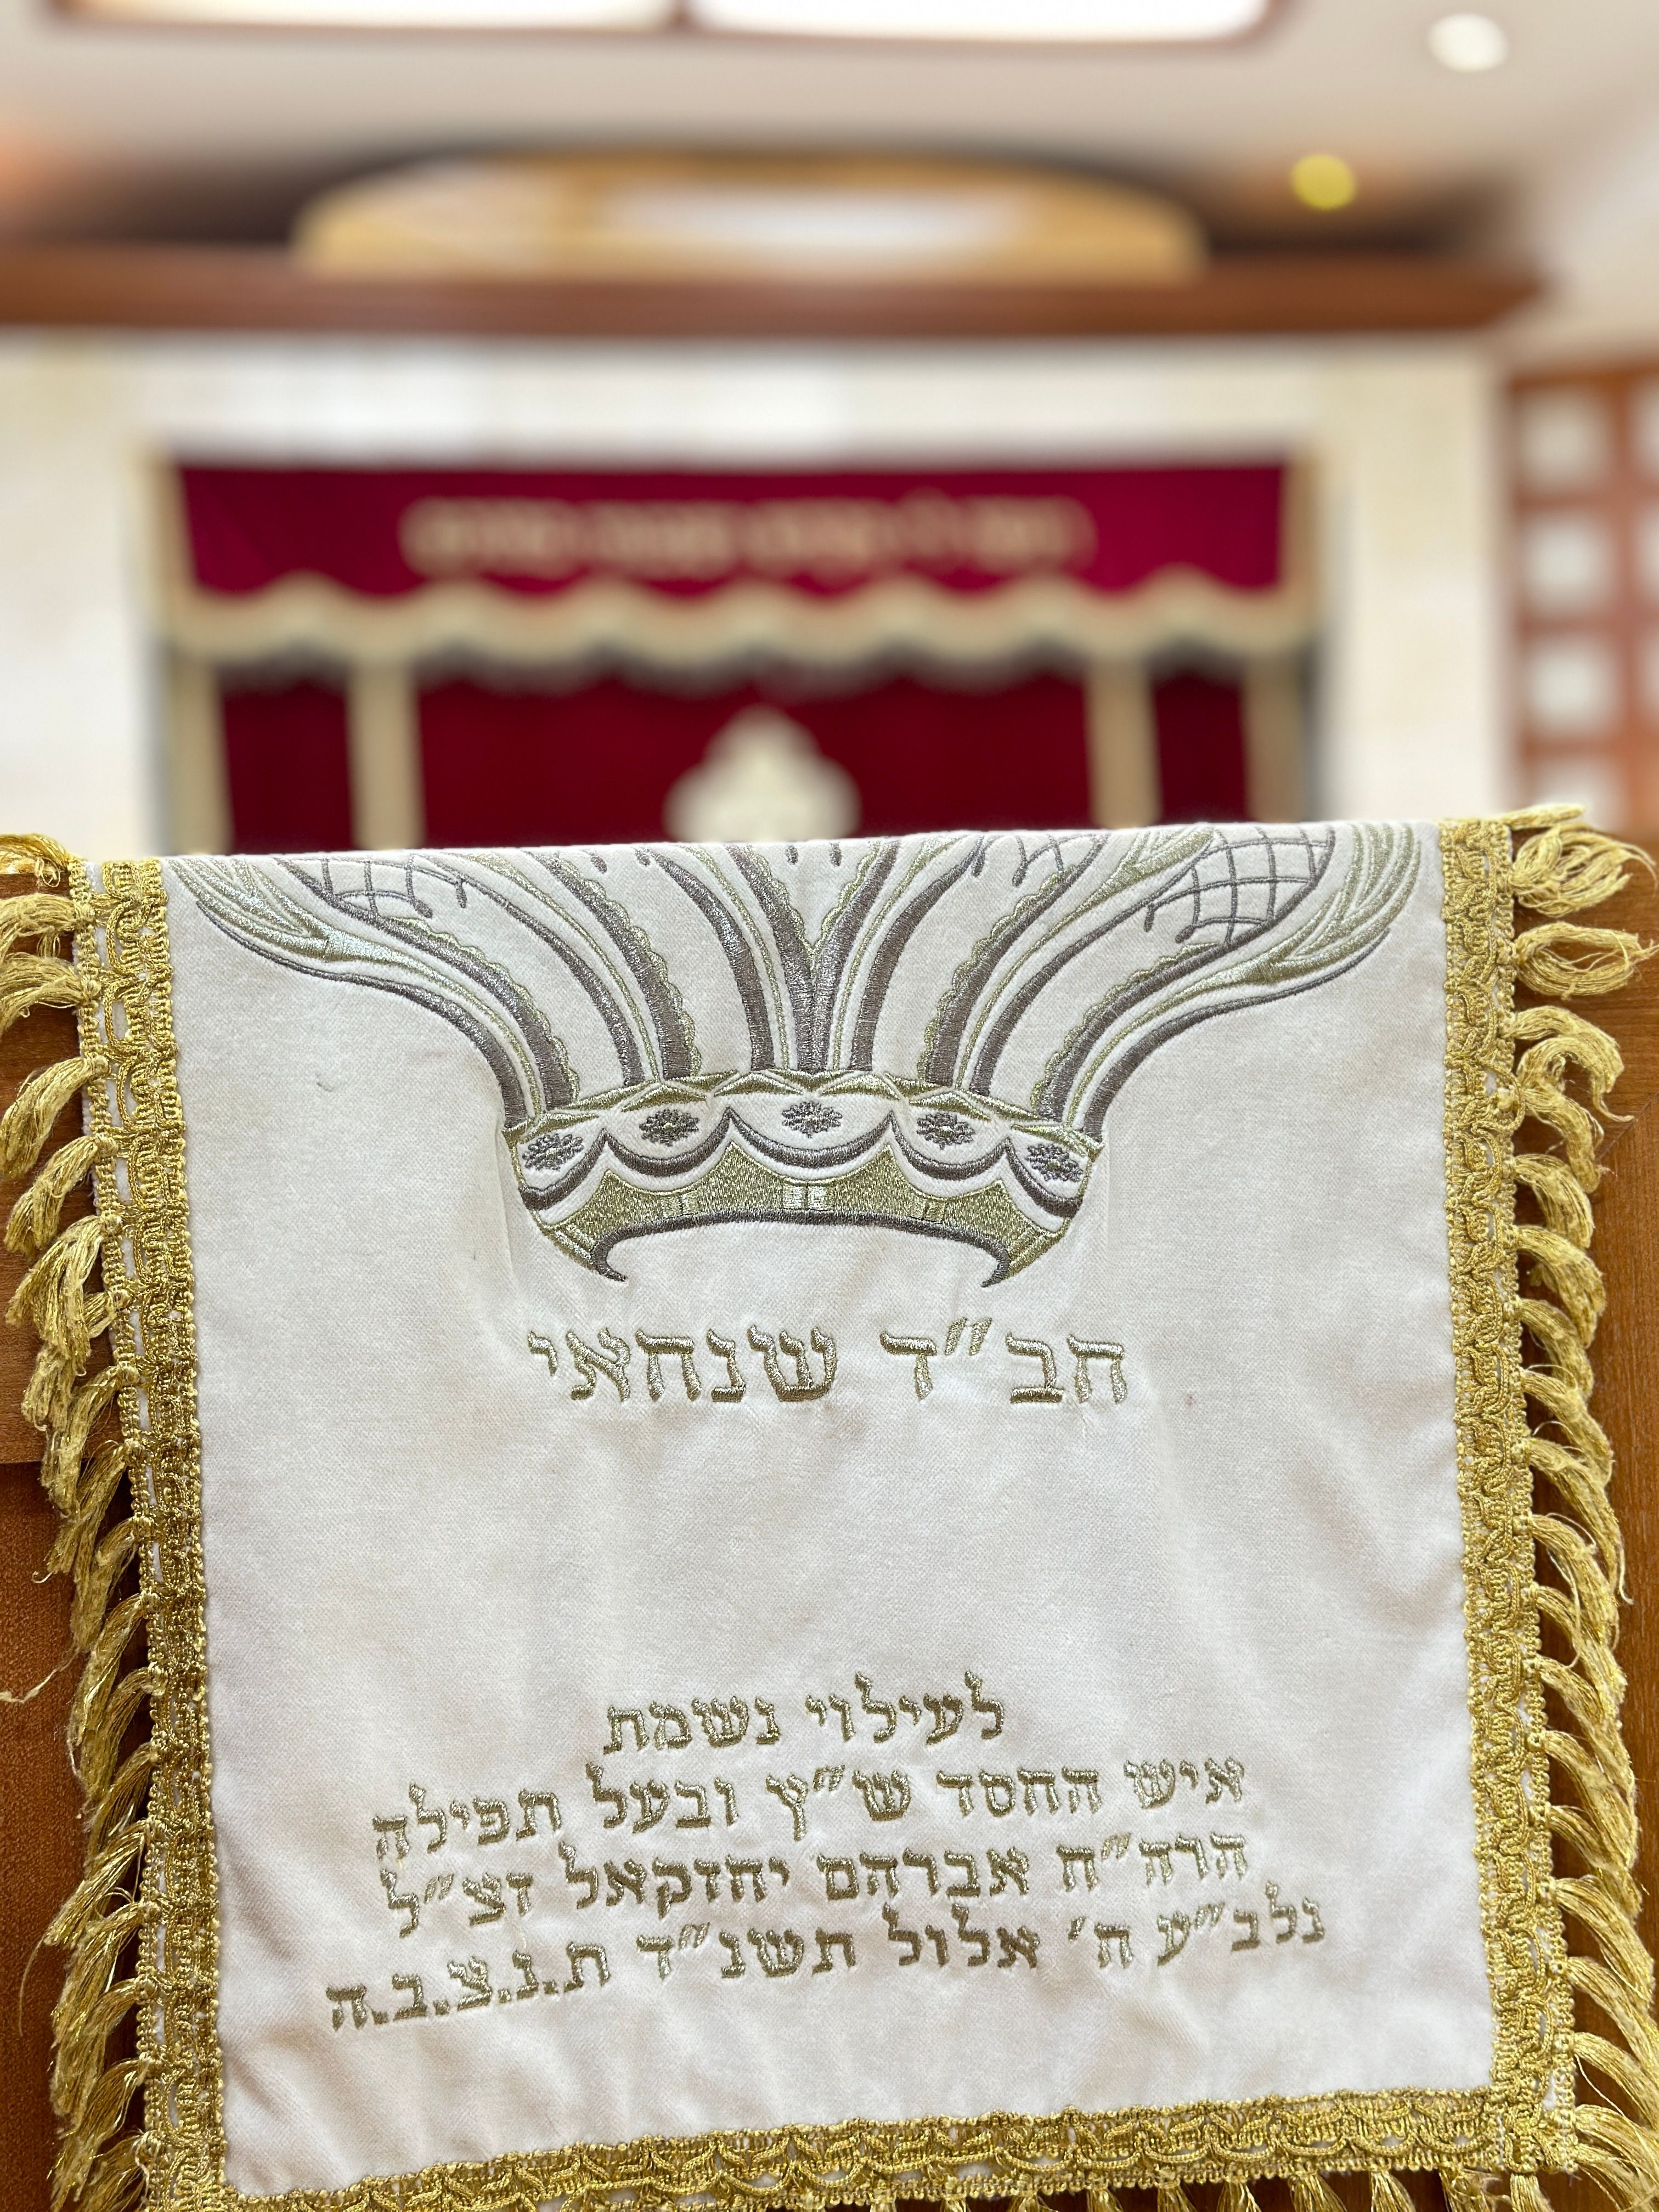 חב"ד שנחאי
לעילוי נשמת
איש החסד ש"ץ ובעל תפילה
הרה"ח אברהם יחזקאל זצ"ל
נלב"ע ה' אלול תשנ"ד ת.נ.צ.ב.ה